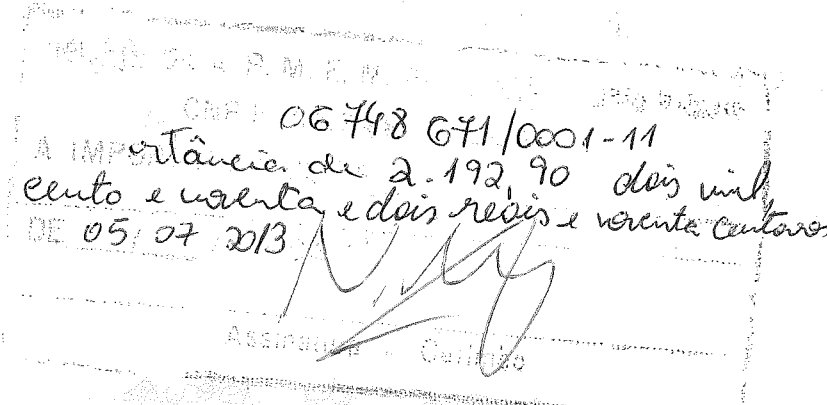 P. M. F. M.
CNPJ 06748 671/0001-11
A IMPortância de 2.192,90 dois mil,
cento e noventa e dois reais e noventa centavos
DE 05/07 2013
Assinatura - Carimbo